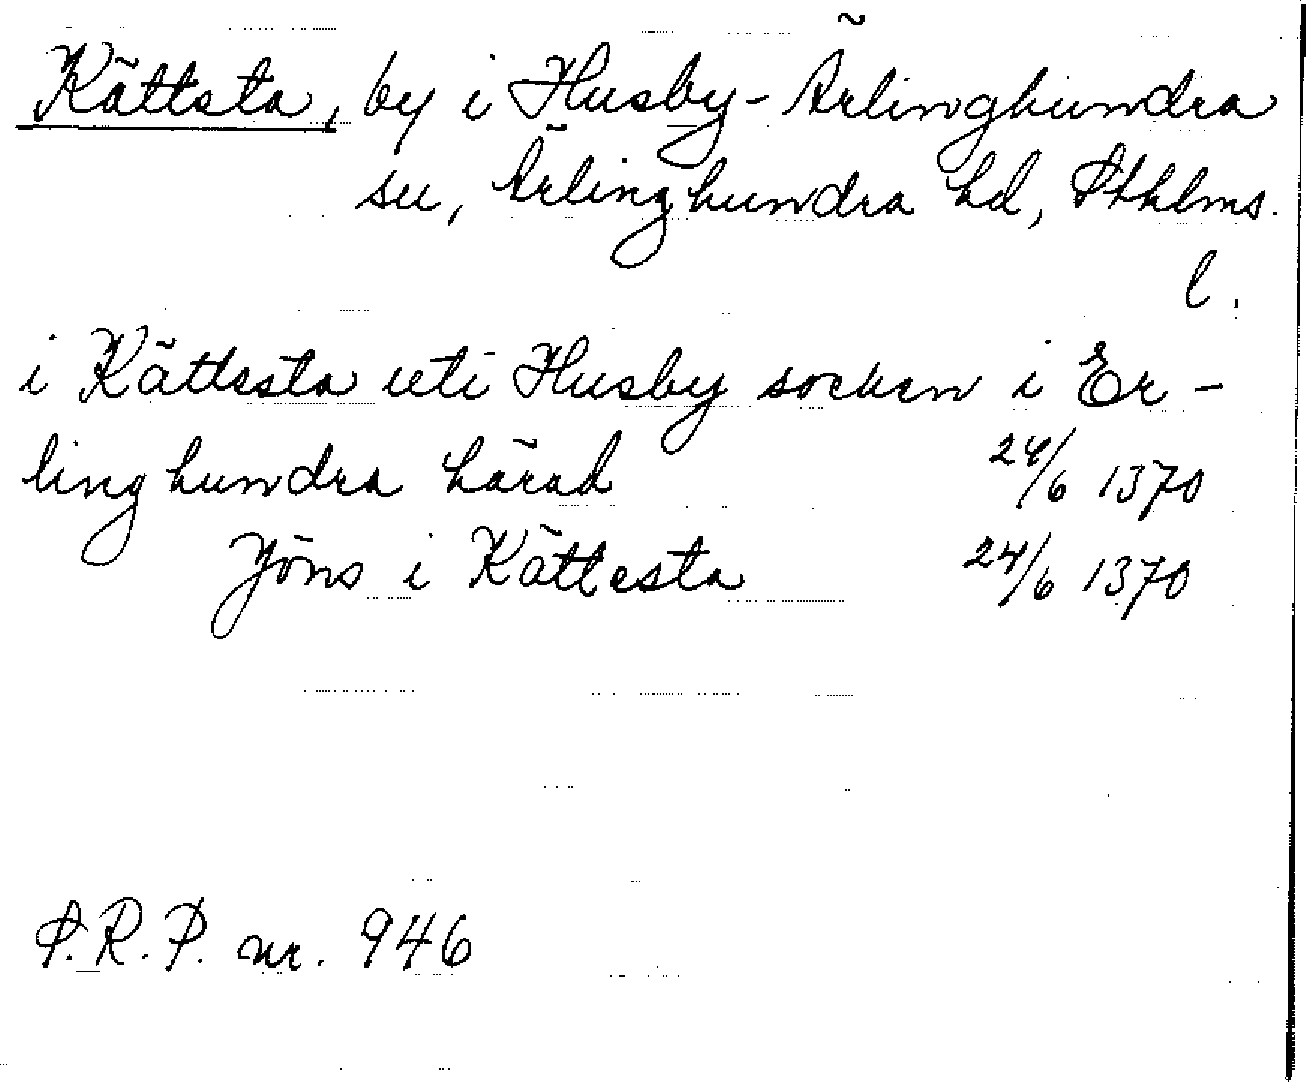 Kättsta, by i Husby-Ärlinghundra
sn, Ärlinghundra hd, Sthlms.
l.
i Kättesta uti Husby socken i Er-
linghundra härad 24/6 1370
Jöns i Kättesta 24/6 1370
S.R.P. nr. 946